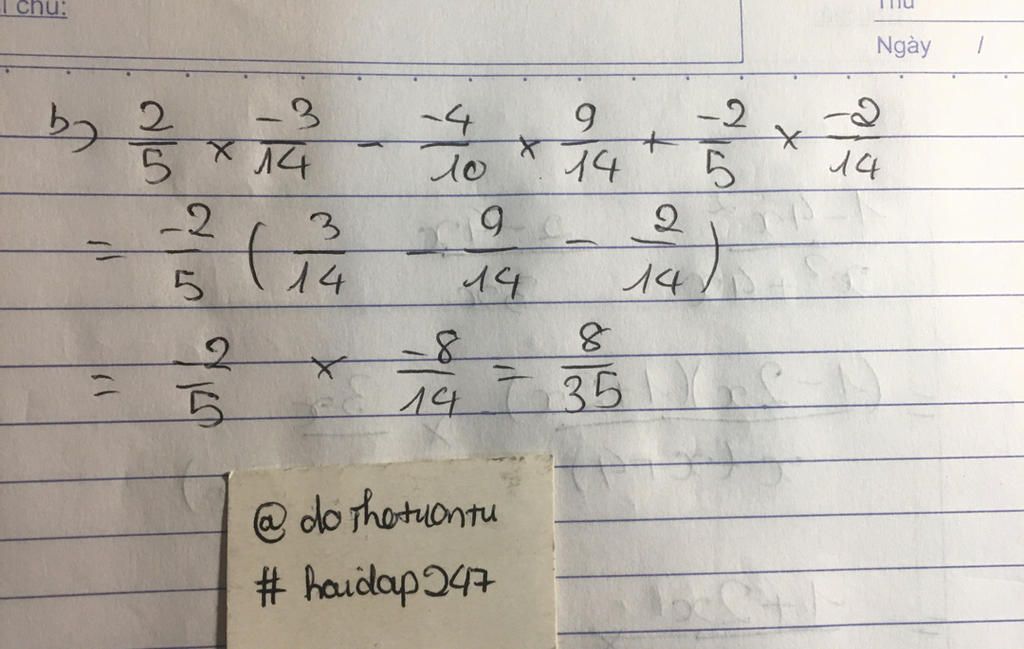 chú:
Thứ
Ngày /
b) 2/5 × -3/14 - -4/10 × 9/14 + -2/5 × -2/14
= -2/5 ( 3/14 - 9/14 - 2/14 )
= -2/5 × -8/14 = 8/35
@ dothetuantu
# hoidap247